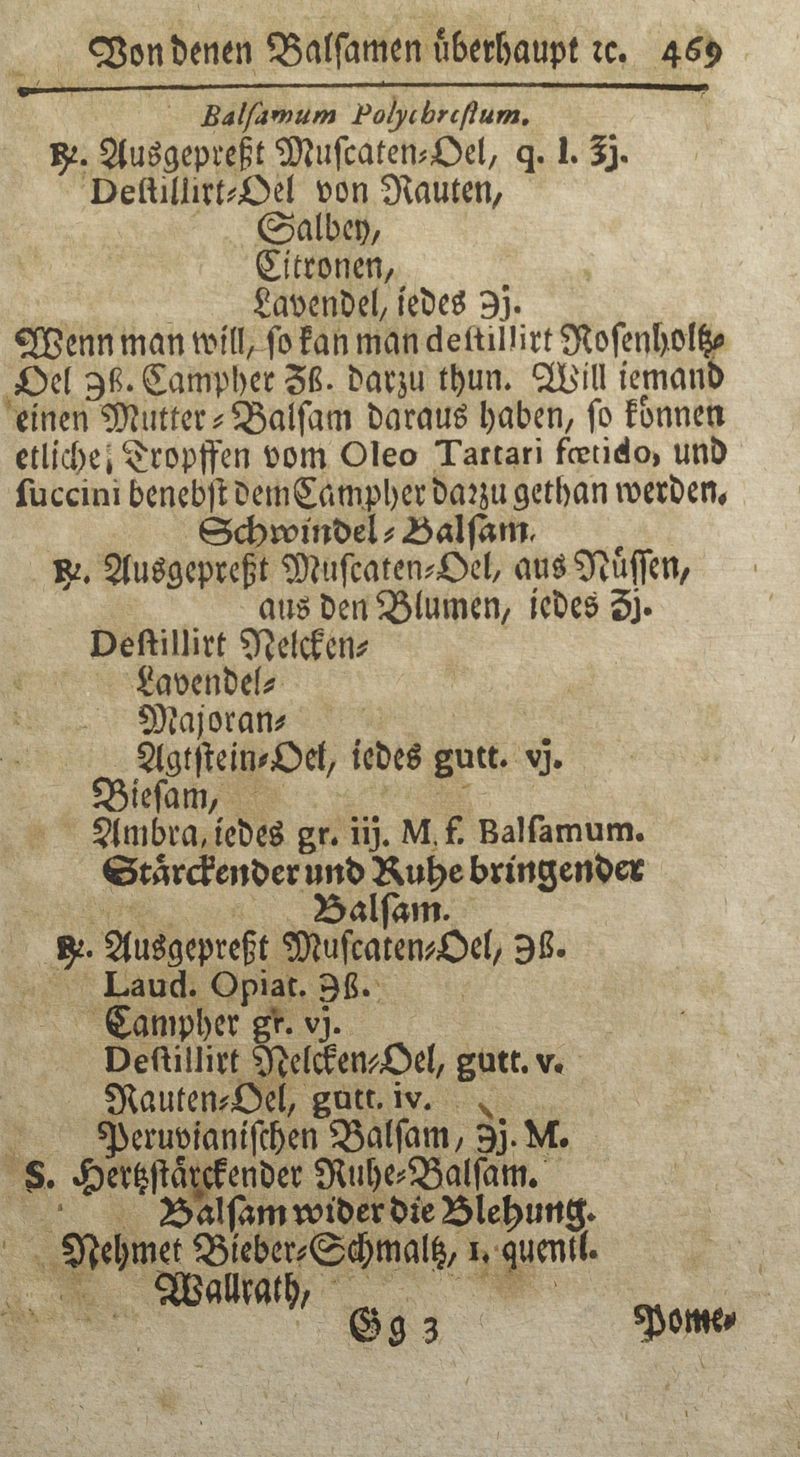 Von denen Balſamen uͤberhaupt ꝛc. 469
Balſamum Polychreſtum.
℞. Ausgepreßt Muſcaten⸗Oel, q. l. ℥j.
Deſtillirt⸗Oel von Rauten,
Salbey,
Citronen,
Lavendel, iedes ℈j.
Wenn man will, ſo kan man deſtillirt Roſenholtz⸗
Oel ℈ß. Campher ʒß. darzu thun. Will iemand
einen Mutter⸗Balſam daraus haben, ſo koͤnnen
etliche Tropffen vom Oleo Tartari fœtido, und
ſuccini benebſt dem Campher daꝛzu gethan werden.
Schwindel⸗Balſam.
℞. Ausgepreßt Muſcaten⸗Oel, aus Nuͤſſen,
aus den Blumen, iedes ʒj.
Deſtillirt Nelcken⸗
Lavendel⸗
Majoran⸗
Agtſtein⸗Oel, iedes gutt. vj.
Bieſam,
Ambra, iedes gr. iij. M. f. Balſamum.
Staͤrckender und Ruhe bringender
Balſam.
℞. Ausgepreßt Muſcaten⸗Oel, ℈ß.
Laud. Opiat. ℈ß.
Campher gr. vj.
Deſtillirt Nelcken⸗Oel, gutt. v.
Rauten⸗Oel, gutt. iv.
Peruvianiſchen Balſam, ℈j. M.
S. Hertzſtaͤrckender Ruhe⸗Balſam.
Balſam wider die Blehung.
Nehmet Bieber⸗Schmaltz, 1. quentl.
Wallrath,
Gg 3 Pome⸗